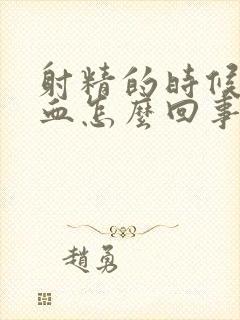 射精的時候
血怎麼回事
趙勇